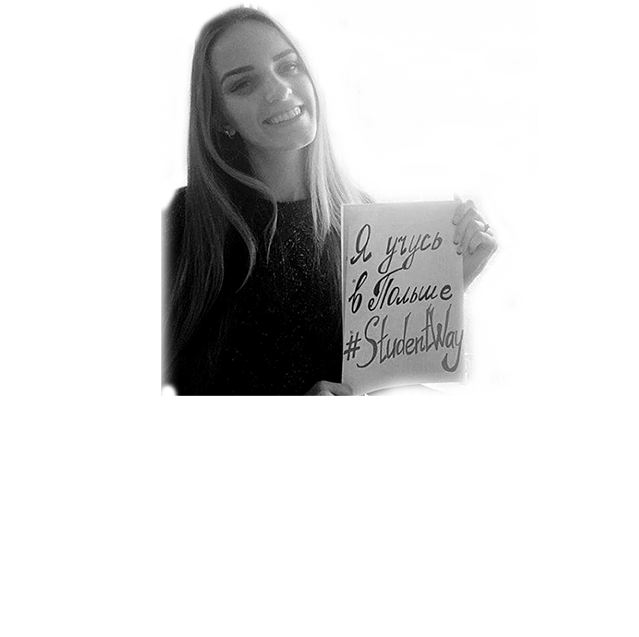 Я учусь
в Польше
#StudentWay